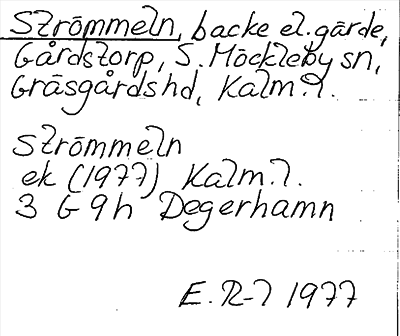 Strömmeln, backe el. gärde,
Gårdstorp, S. Möckleby sn,
Gräsgårds hd, Kalm. l.
Strömmeln
ek (1977) Kalm. l.
3 G 9 h Degerhamn
E. R-l 1977